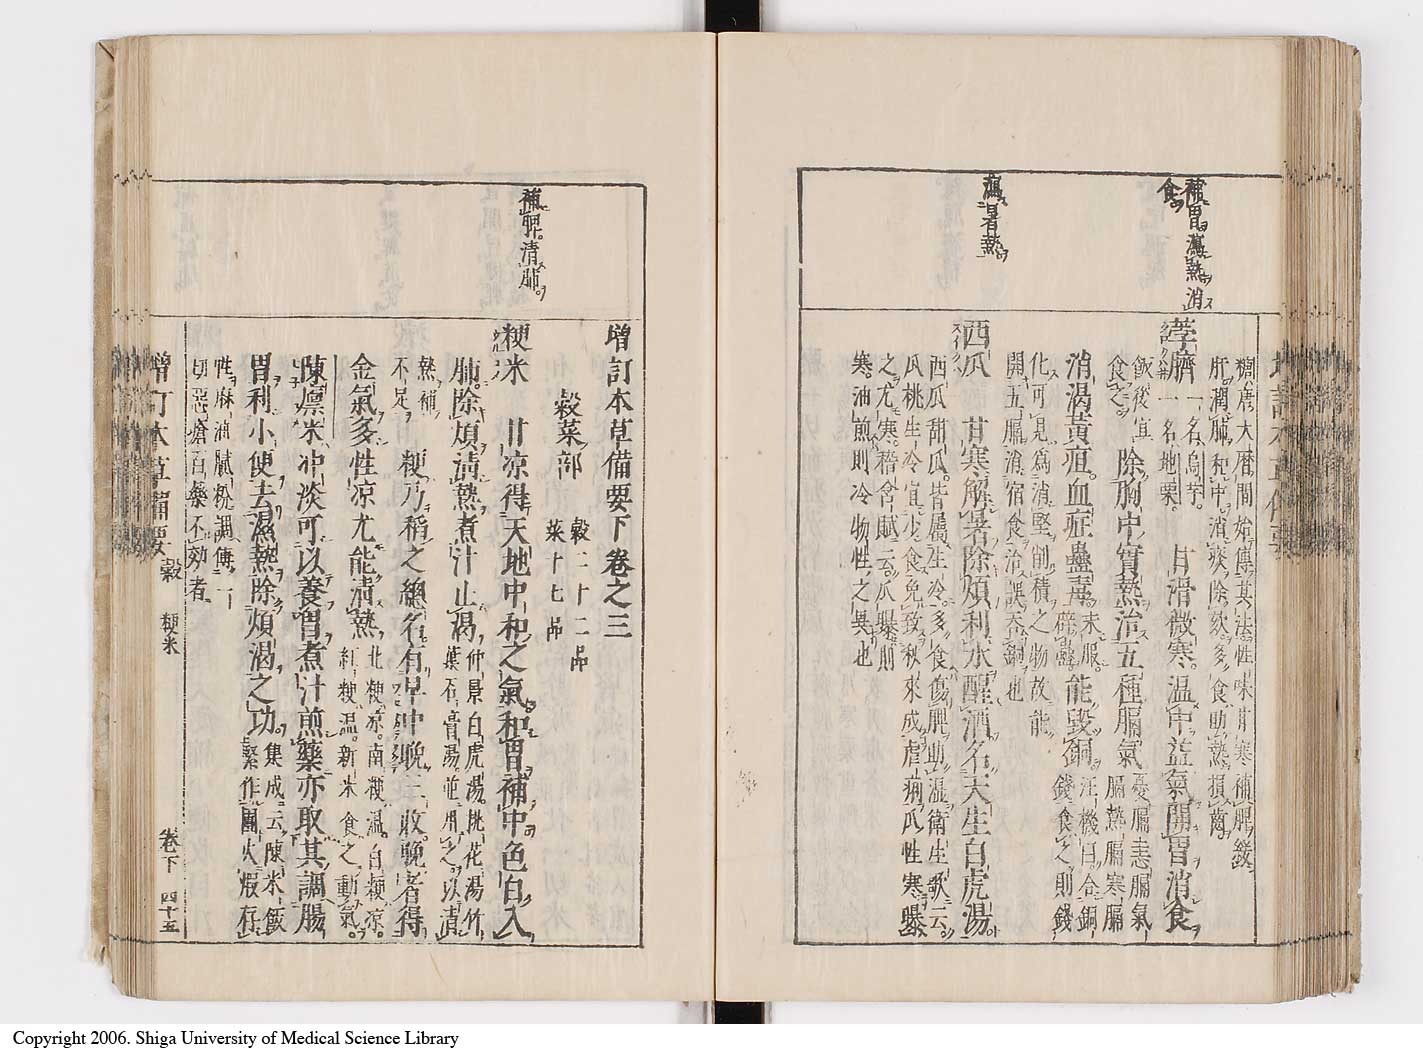 補胃瀉熱消
食
瀉暑熱
糖唐大曆間始傳其法性味甘寒補脾緩
肝潤肺和中消痰除欬多食助熱損齒
荸臍一名烏芋
一名地栗甘滑微寒温中益氣開胃消食
飯後宜
食之除胸中實熱治五種膈氣憂膈恚膈氣
膈熱膈寒膈
消渴黄疸血症蠱毒末服
辟蠱能毀銅汪機曰合銅
錢食之則錢
化可見為消堅削積之物故能
開五膈消宿食治誤吞銅也
西瓜甘寒解暑除煩利水醒酒名天生白虎湯
西瓜甜瓜皆屬生冷多食傷脾助濕衛生歌云
瓜桃生冷宜少食免致秋來成瘧痢瓜性寒曝
之尤寒稽含賦云瓜曝則
寒油煎則冷物性之異也
補脾清肺
增訂本草備要下卷之三
穀菜部
穀二十二品
菜十七品
粳米甘凉得天地中和之氣和胃補中色白入
肺除煩清熱煮汁止渴仲景白虎湯桃花湯竹
葉石膏湯並用之以清
熱補
不足粳乃稻之總名有早中晚三收晚者得
金氣多性凉尤能清熱北粳凉南粳温白粳凉
紅粳温新米食之動氣
陳廩米冲淡可以養胃煮汁煎藥亦取其調腸
胃利小便去濕熱除煩渴之功集成云陳米飯
緊作團火煅存
性麻油膩粉調傅一
切惡瘡百藥不効者
增訂本草備要
穀
粳米
卷下
四十五